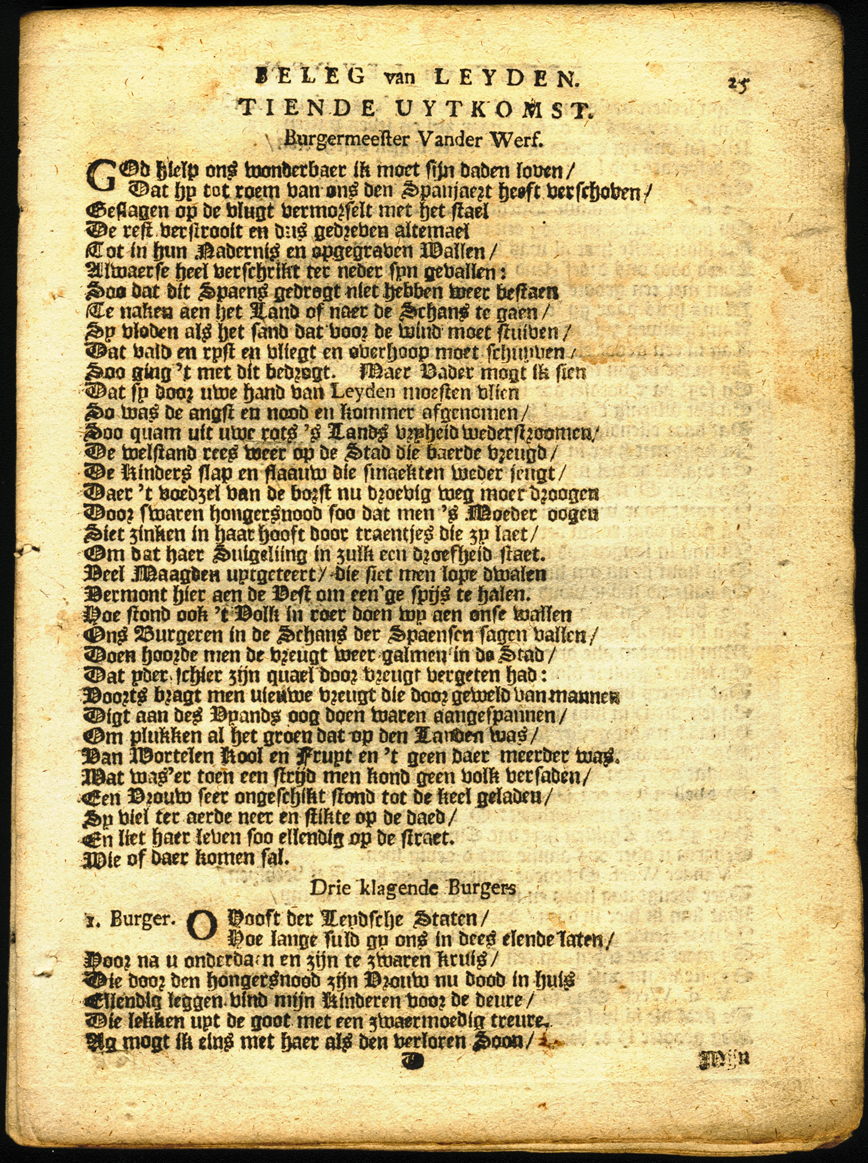 BELEG van LEYDEN. 25
TIENDE UYTKOMST.
Burgermeester Vander Werf.
GOd hielp ons wonderbaer ik moet sijn daden loven/
Dat hy tot roem van ons den Spanjaert heeft verschoven/
Geslagen op de vlugt vermorselt met het stael
De rest verstrooit en dus gedreven altemael
Tot in hun Nadernis en opgegraven Wallen/
Alwaerse heel verschrikt ter neder syn gevallen:
Soo dat dit Spaens gedrogt niet hebben weer bestaen
Te naken aen het Land of naer de Schans te gaen/
Sy vloden als het sand dat voor de wind moet stuiven/
Dat vald en ryst en vliegt en overhoop moet schuyven/
Soo ging 't met dit bedrogt. Maer Vader mogt ik sien
Dat sy door uwe hand van Leyden moesten vlien
So was de angst en nood en kommer afgenomen/
Soo quam uit uwe rots 's Lands vryheid wederstroomen/
De welstand rees weer op de Stad die baerde vreugd/
De Kinders slap en flaauw die smaekten weder jeugt/
Daer 't voedzel van de borst nu droevig weg moet droogen
Door swaren hongersnood soo dat men 's Moeder oogen
Siet zinken in haar hooft door traentjes die zy laet/
Om dat haer Suigeling in zulk een droefheid staet.
Veel Maagden uytgeteert/ die siet men lope dwalen
Vermont hier aen de Vest om een'ge spijs te halen.
Hoe stond ook 't Volk in roer doen wy aen onse wallen
Ons Burgeren in de Schans der Spaensen sagen vallen/
Doen hoorde men de vreugt weer galmen in de Stad/
Dat yder schier zijn quael door vreugt vergeten had:
Voorts bragt men nieuwe vreugt die door geweld van mannen
Digt aan des Vyands oog doen waren aangespannen/
Om plukken al het groen dat op den Landen was/
Van Wortelen Kool en Fruyt en 't geen daer meerder was.
Wat was'er toen een strijd men kond geen volk versaden/
Een Vrouw seer ongeschikt stond tot de keel geladen/
Sy viel ter aerde neer en stikte op de daed/
En liet haer leven soo ellendig op de straet.
Wie of daer komen sal.
Drie klagende Burgers
1. Burger. O Hooft der Leydsche Staten/
Hoe lange suld gy ons in dees elende laten/
Hoor na u onderdaen en zijn te zwaren kruis/
Die door den hongersnood zijn Vrouw nu dood in huis
Ellendig leggen vind mijn Kinderen voor de deure/
Die lekken uyt de goot met een zwaermoedig treure,
Ag mogt ik eins met haer als den verloren Soon/
D Mijn